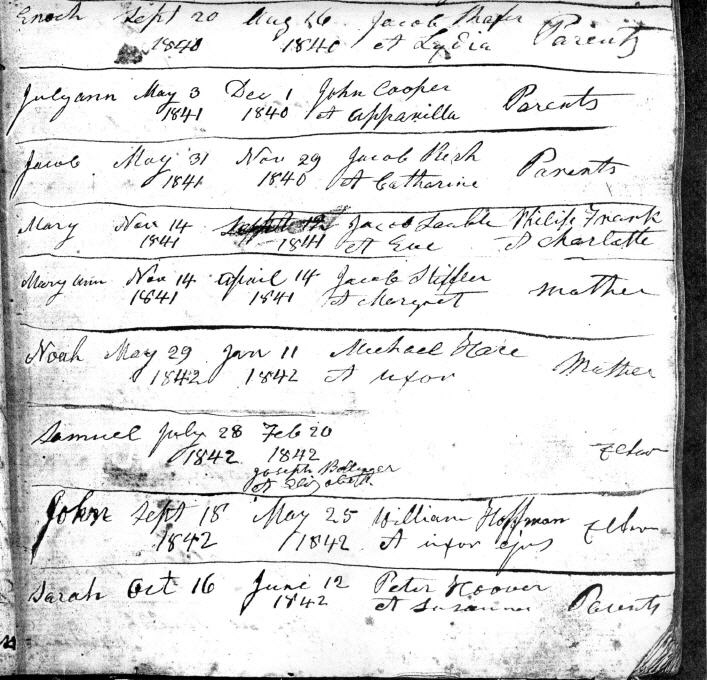 Enoch Sept 20 Aug 16 Jacob Shafer Parents
1840 1840 et Lydia
Julyann May 3 Dec 1 John Cooper Parents
1841 1840 et appanilla
Jacob May 31 Nov 29 Jacob Parents
1841 1840 et Catharine
Mary Nov 14 Philip Frank
1841 1841 et Eve et Charlatte
Mary ann Nov 14 April 14 Jacob Stiffler mother
1841 1841 et Margret
Noah May 29 Jan 11 Michael Hare Mother
1842 1842 et uxor
Samuel July 28 Feb 20
1842 1842
Joseph
et Elizabeth
John Sept 18 May 25 William Hoffman
1842 1842 et uxor ejus
Sarah Oct 16 June 12 Peter Hoover Parents
1842 et Susanna